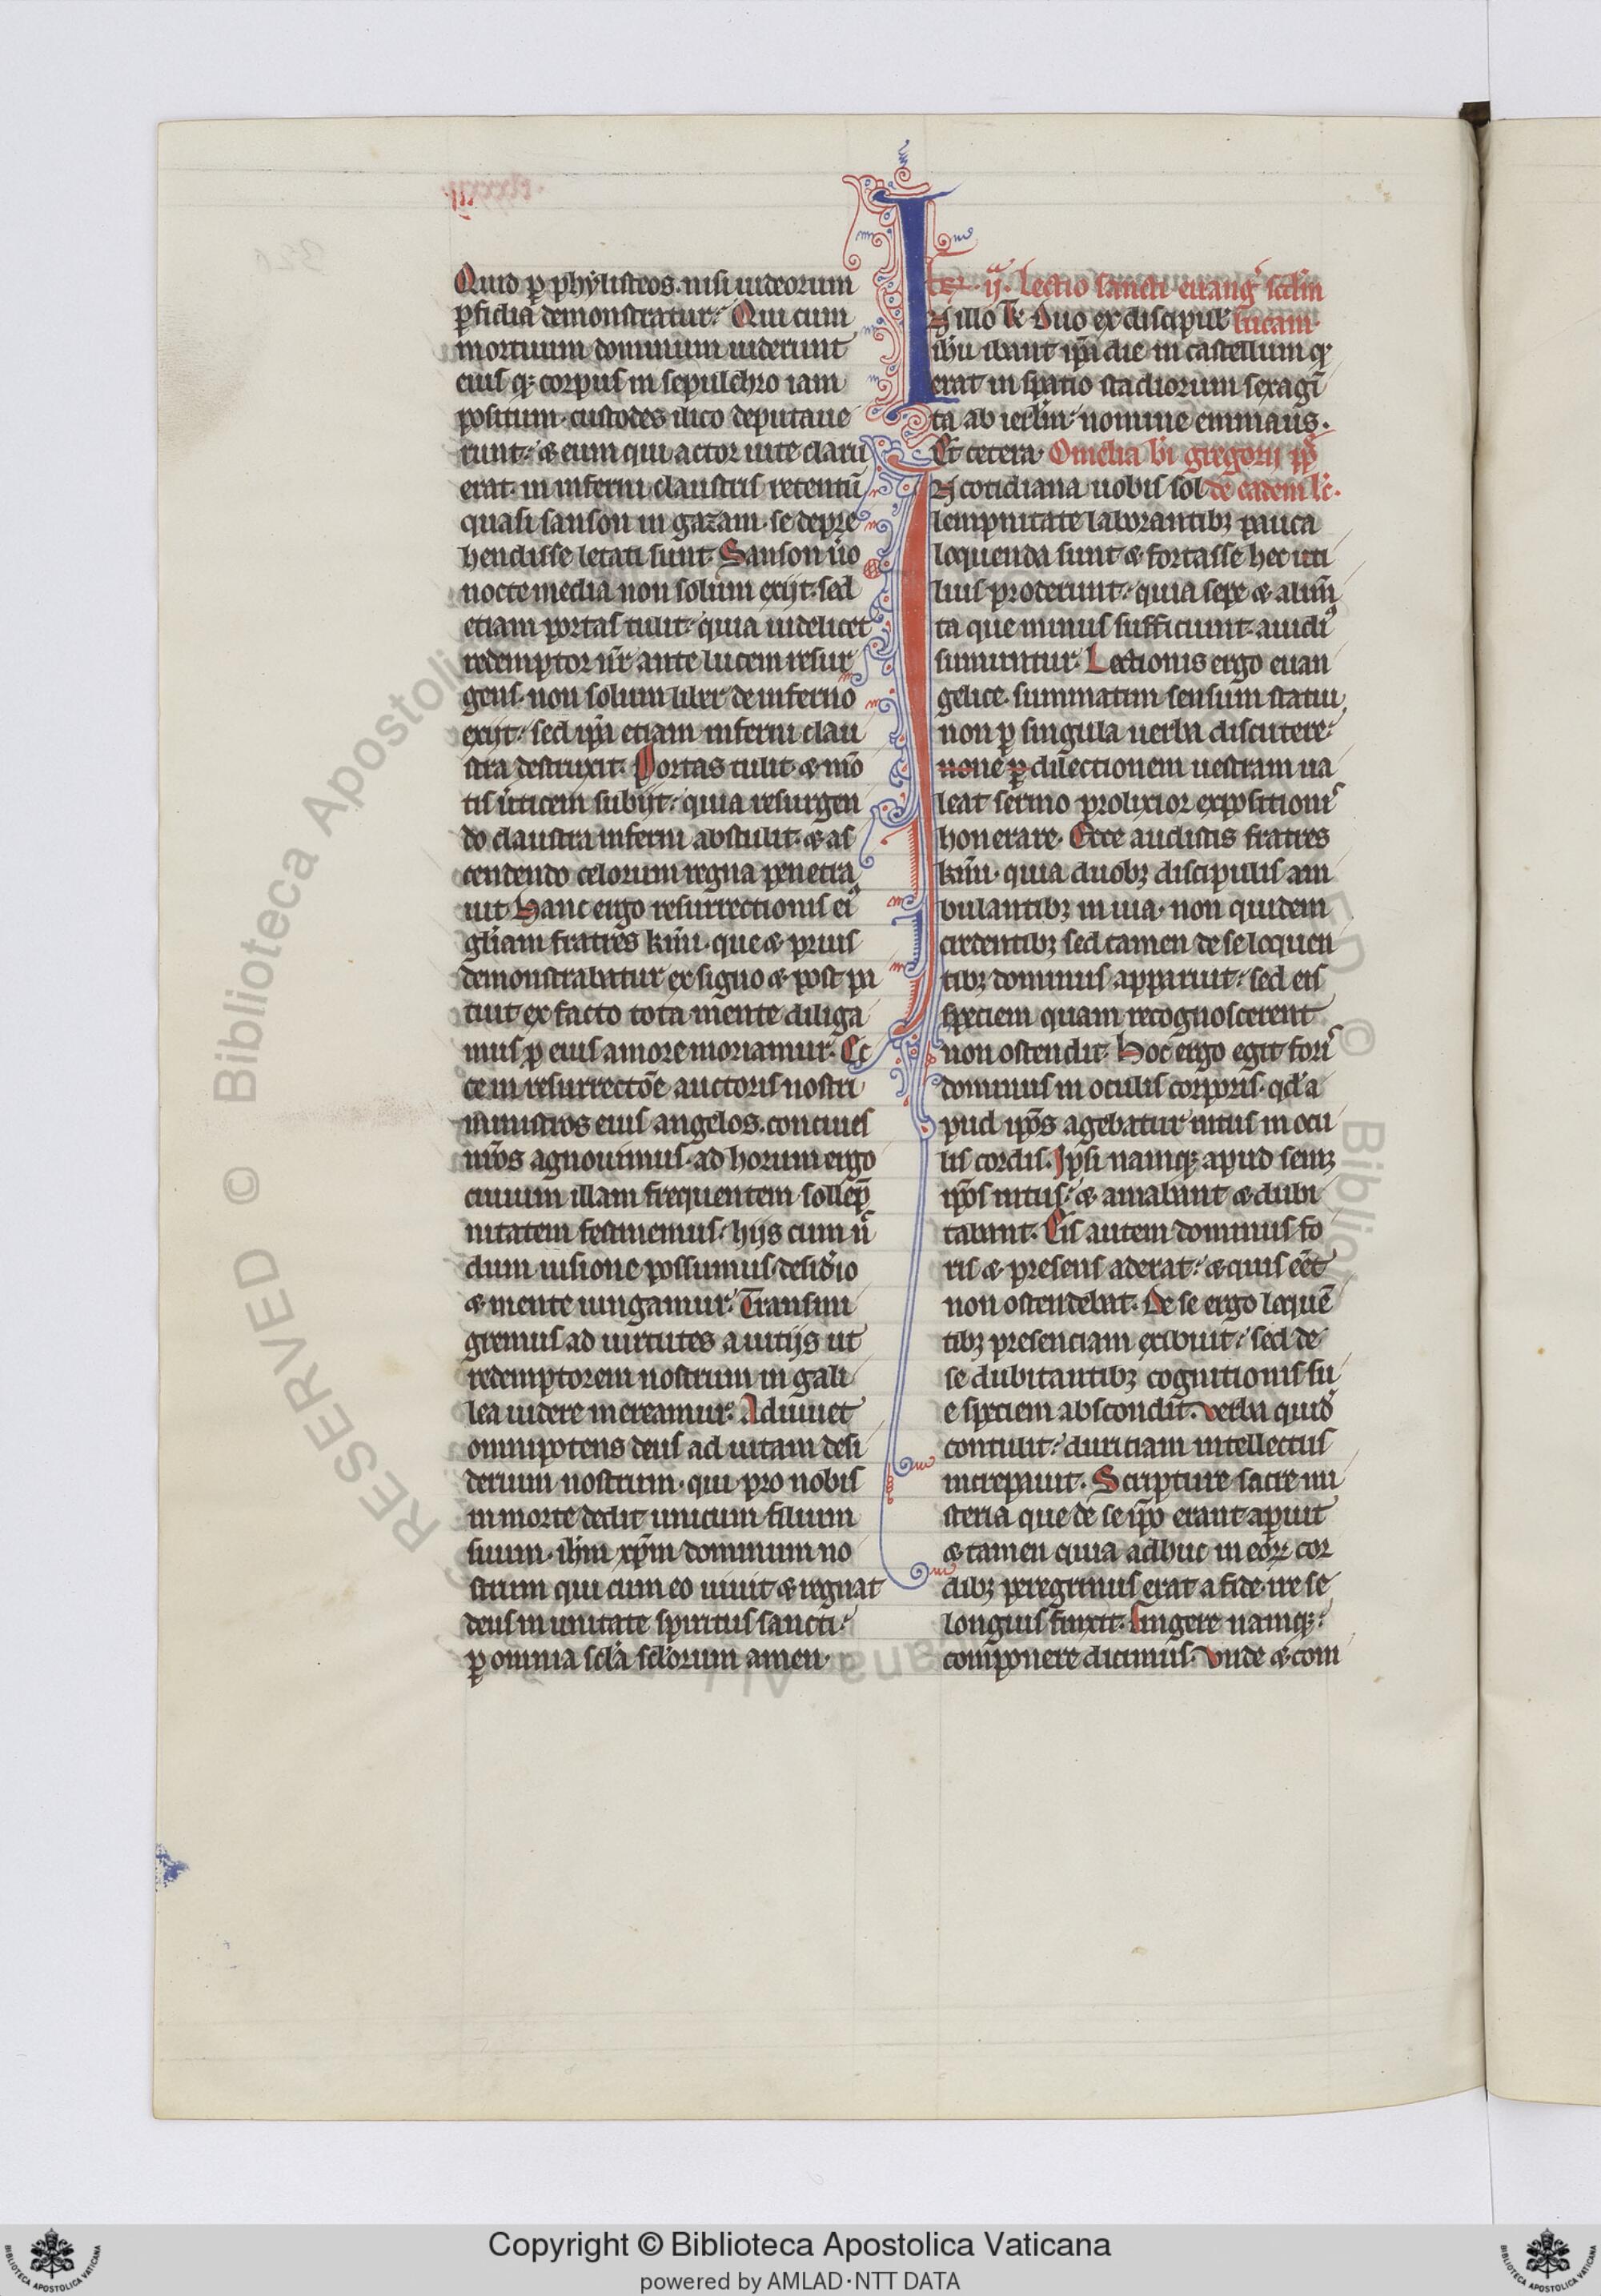 Quid ꝑ phylisteos. nisi iudeorum
ꝑfidia demonstratur? Qui cum
mortuum dominum uiderunt
eius qꝫ corpus in sepulchro iam
positum. custodes ilico deputaue
runt. & eum qui actor uite claru
erat. in inferni claustris retentū
quasi sanson in gazam. se depre
hendisse letati sunt. Sanson ūo
nocte media non solum exijt. sed
etiam portas tulit. quia uidelicet
redemptor nr̄ ante lucem resur
gens. non solum liber de inferno
exijt. sed ip̄a etiam inferni clau
stra destruxit. Portas tulit. & mō
tis ūticem subijt. quia resurgen
do claustra inferni abstulit. & as
cendendo celorum regna penetra
uit. Hanc ergo resurrectionis eiꝰ
gl̄iam fratres kr̄mi. que & prius
demonstrabatur ex signo & post pa
tuit ex facto tota mente diliga
mus. ꝑ eius amore moriamur. Ec
ce in resurrectōe auctoris nostri
ministros eius angelos. conciues
nr̄os agnouimus. ad horum ergo
ciuium illam frequentem sollep̄
nitatem festinemus. hijs cum n̄
dum uisione possumus. desiđio
& mente iungamur. Transmi
gremus ad uirtutes a uitijs ut
redemptorem nostrum in gali
lea uidere mereamur. Adiuuet
omnipotens deus ad uitam desi
derium nostrum. qui pro nobis
in morte dedit unicum filium
suum. ih̄m xp̄m dominum no
strum qui cum eo uiuit & regnat
deus in unitate spiritus sancti.
ꝑ omnia scl̄a scl̄orum amen.
ij. Lectio sancti euangˀ scd̄m
IN illo tꝑe Duo ex discipul' lucam.
ih̄u ibant ip̄a die in castellum qꝫ
erat in spatio stadiorum sexagī
ta ab ierlm̄. nomine emmaus.
Et cetera. Omelia bi gregorij pp̄
IN cotidiana uobis sol de eadem lc̄.
lempnitate laborantibꝫ pauca
loquenda sunt & fortasse hec uti
lius proderunt. quia sepe & alim̄
ta que minus sufficiunt. auidiꝰ
sumuntur. Lectionis ergo euan
gelice. summatim sensum statui,
non ꝑ singula uerba discutere.
none ꝑ dilectionem uestram ua
leat sermo prolixior expositionis
honerare. Ecce audistis fratres
kr̄mi. quia duobꝫ discipulis am
bulantibꝫ in uia. non quidem
credentibꝫ sed tamen de se loquen
tibꝫ dominus apparuit. sed eis
speciem quam recognoscerent
non ostendit. Hoc ergo egit foris
dominus in oculis corporis. qd̄ a
pud ip̄os agebatur intus in ocu
lis cordis. Ipsi namqꝫ apud semꝫ
ip̄os intus. & amabant & dubi
tabant. Eis autem dominus fo
ris & presens aderat. & quis eēt
non ostendebat. De se ergo loquē
tibꝫ presenciam exibuit. sed de
se dubitantibꝫ cognitionis su
e speciem abscondit. Verba quid̄
contulit. duritiam intellectus
increpauit. Scripture sacre mi
steria que de se ip̄o erant aperuit
& tamen quia adhuc in eoꝝ cor
dibꝫ peregrinus erat a fide. ire se
longius finxit. Fingere namqꝫ.
componere dicimus. Vnde & com
© Biblioteca Apostolica Vaticana
Copyright © Biblioteca Apostolica Vaticana
powered by AMLAD·NTT DATA